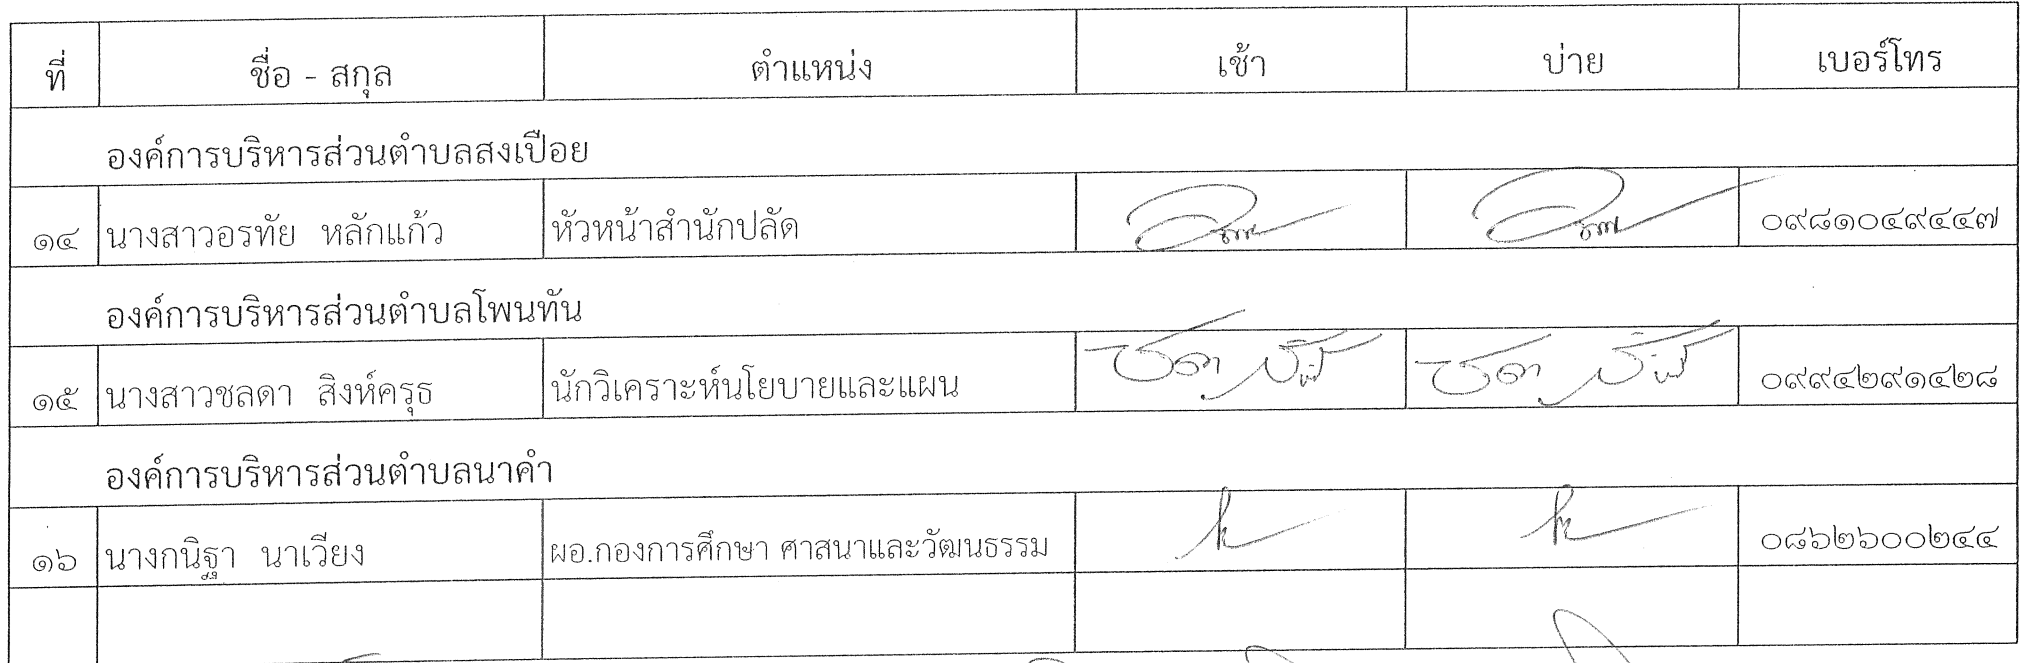 ที่ ชื่อ - สกุล ตำแหน่ง เช้า บ่าย เบอร์โทร
องค์การบริหารส่วนตำบลสงเปือย
๑๔ นางสาวอรทัย หลักแก้ว หัวหน้าสำนักปลัด ๐๙๘๑๐๔๙๔๔๗
องค์การบริหารส่วนตำบลโพนทัน
๑๕ นางสาวชลดา สิงห์ครุธ นักวิเคราะห์นโยบายและแผน ๐๙๙๔๒๙๑๔๒๘
องค์การบริหารส่วนตำบลนาคำ
๑๖ นางกนิฐา นาเวียง ผอ.กองการศึกษา ศาสนาและวัฒนธรรม ๐๘๖๒๖๐๐๒๔๔